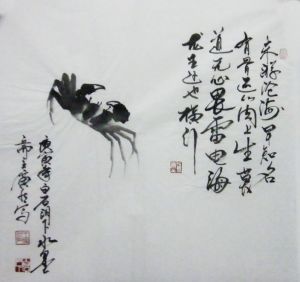 未游沧海早知名
有骨还从肉上生莫
道无心畏雷电海
龙王处也横行
庚寅年白石门下水墨
写